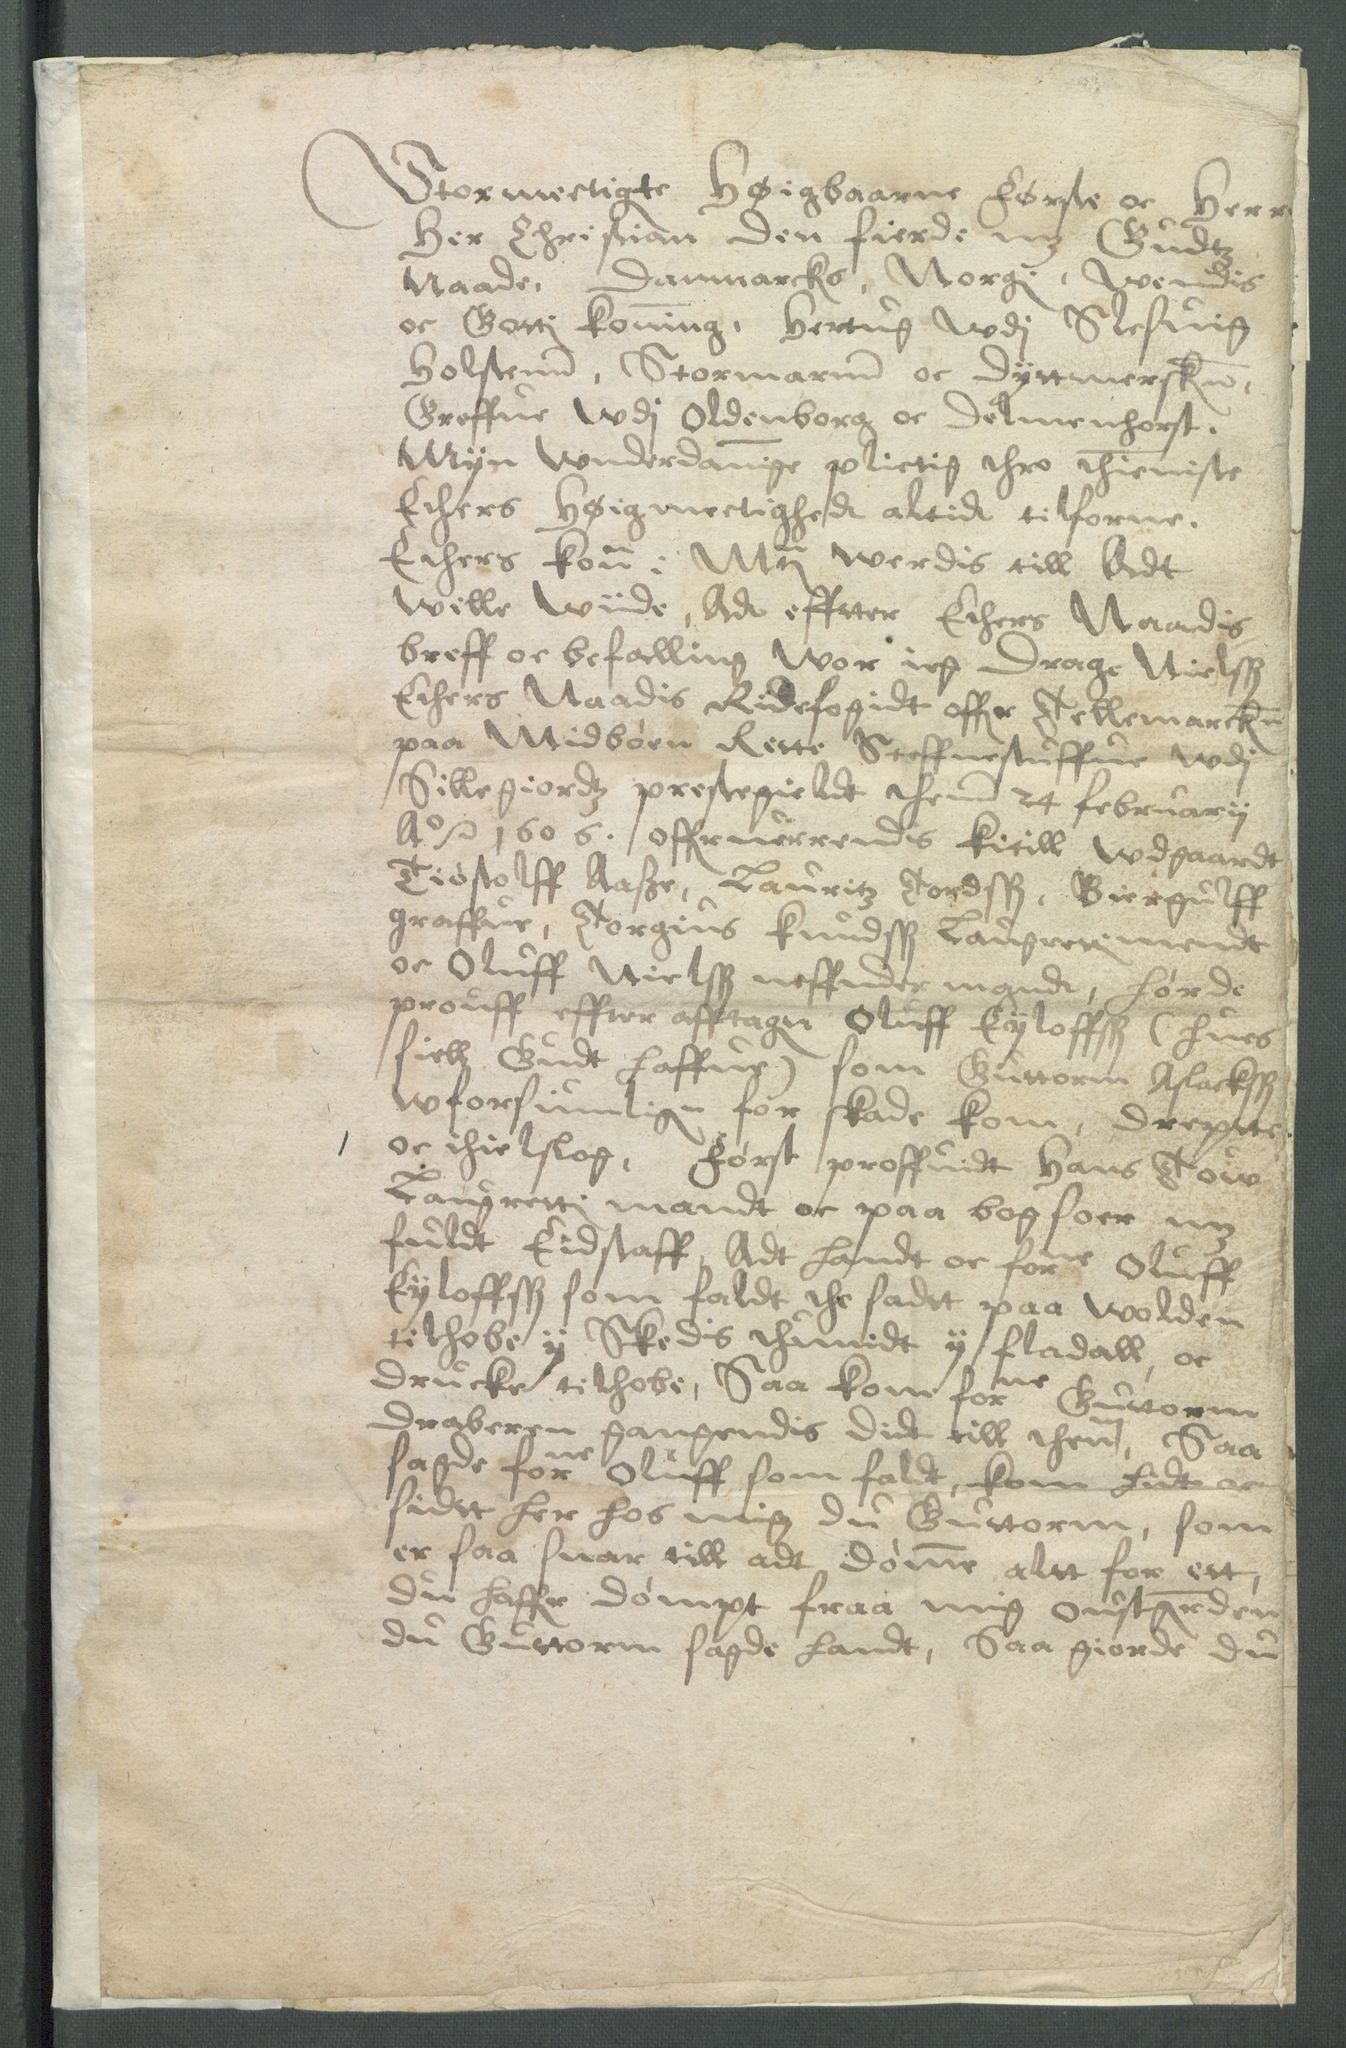 Stormectigte Høigbaarne Første oc Herr
Her Christian den fierde mz Gudtz
Naade, Danmarcks, Norgi, Wendis
oc Gotti Konning, Hertug wdj Slesuig
Holstenn, Stormarnn oc Dÿttmerskn,
Greffue wdj Oldenborg oc Delmenhorst.
Mÿn wnderdanige plictig thro thieniste
Ethers Høigmectighedt altidt tilforne.
Ethers Kon: Mtz werdis till Adt
wille wiide, Adt effter Ethers Naadis
breff oc befalling wor ieg Drage Nielssz
Ethers Naadis Ridefogidt offr Tellemarckn
paa Midbøen Rette Steffnestuffue wdj
Sillegiordtz prestegieldt thenn 24 februarij
Ao 1606. offruerrendis Kitill wdgaardt
Tiostolff Aasze, Lauritz Tordssz, Biergulff
graffue, Torgius Knudssz Laugrettismendt
oc Oluff Nielssz neffnder mandt, hørde
prouff effter afftagn Oluff Eÿloffssz (hues
sielh Gudt haffue) som Guttorm Aslackssz
wforsiunlign for skade kom, dreptte
oc ihielslog. Først proffuidt Hans Tow
Laugretti mandt oc paa bog soer mz
fuldt Eidstaff, Adt handt oc forne Oluff
Eÿloffssz som faldt the sadtt paa wolden
tilhobe ÿ Skedis thuunidt ÿ fladall, oc
druckr tilhobe, Saa kom forne Guttorm
draberen gangendis didt till thenn, Saa
sagde forne Oluff som faldt, kom hidt oc
sidtt her hos mig du Guttorm, som
er saa snar till adt dømme altt for ett,
du haffr dømpt fraa mig Oustgarden
du Guttorm sagde handt, Saa giorde du